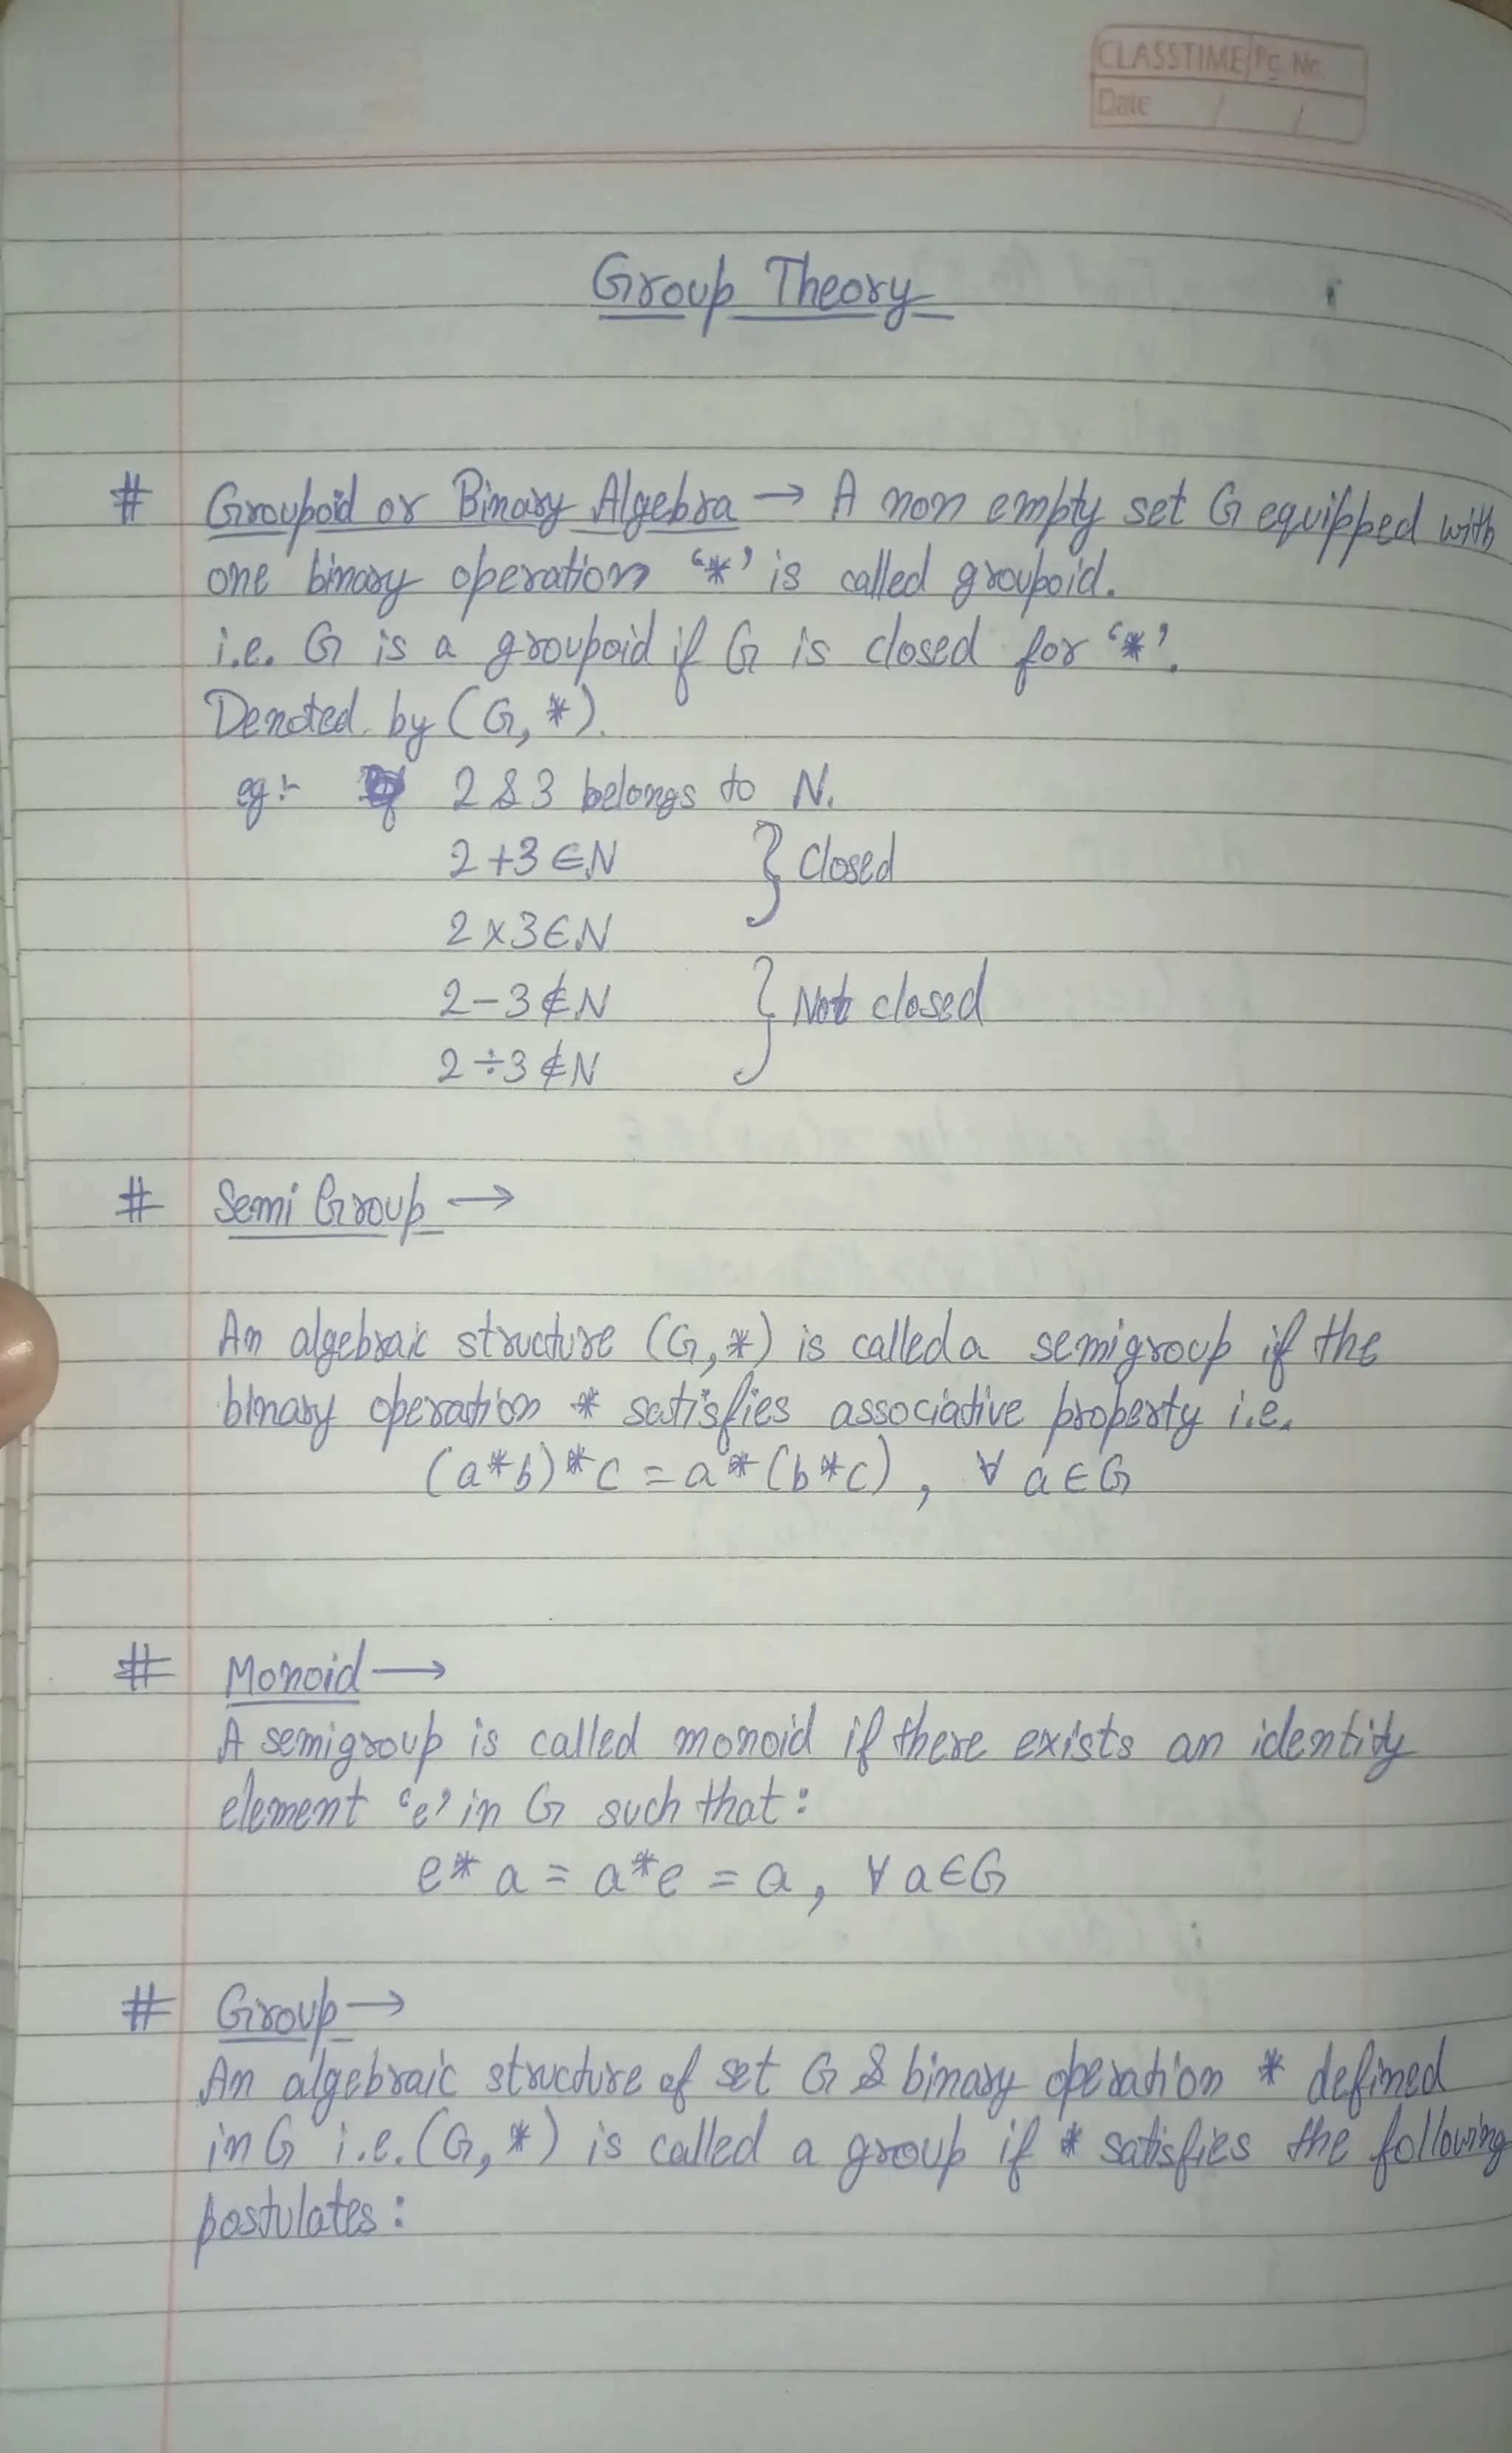 CLASSTIME Pg. No.
Date / /
Group Theory
# Groupoid or Binary Algebra → A non empty set G equipped with
one binary operation ‘*’ is called groupoid.
i.e. G is a groupoid if G is closed for ‘*’.
Denoted by (G, *).
eg:- 2 & 3 belongs to N.
2 + 3 ∈ N } Closed
2 × 3 ∈ N
2 - 3 ∉ N } Not closed
2 ÷ 3 ∉ N
# Semi Group →
An algebraic structure (G, *) is called a semigroup if the
binary operation * satisfies associative property i.e.
(a * b) * c = a * (b * c), ∀ a ∈ G
# Monoid →
A semigroup is called monoid if there exists an identity
element ‘e’ in G such that:
e * a = a * e = a, ∀ a ∈ G
# Group →
An algebraic structure of set G & binary operation * defined
in G i.e. (G, *) is called a group if * satisfies the following
postulates: